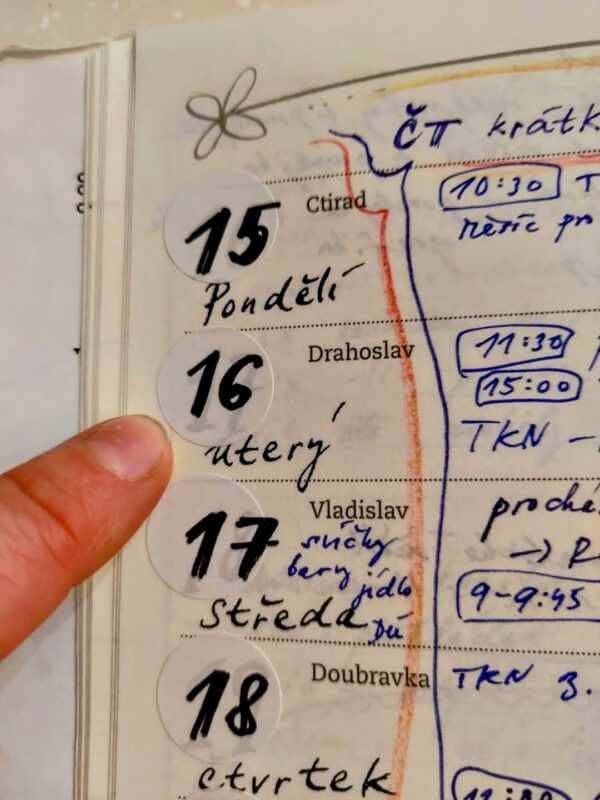 ČT krátk
15 Ctirad 10:30 T
Pondělí měsíc pro
16 Drahoslav 11:30
15:00
úterý TKN -
17 Vladislav prochá
svíčky → R
barvy jídlo
Středa DÚ 9-9:45
18 Doubravka TKN 3.
čtvrtek